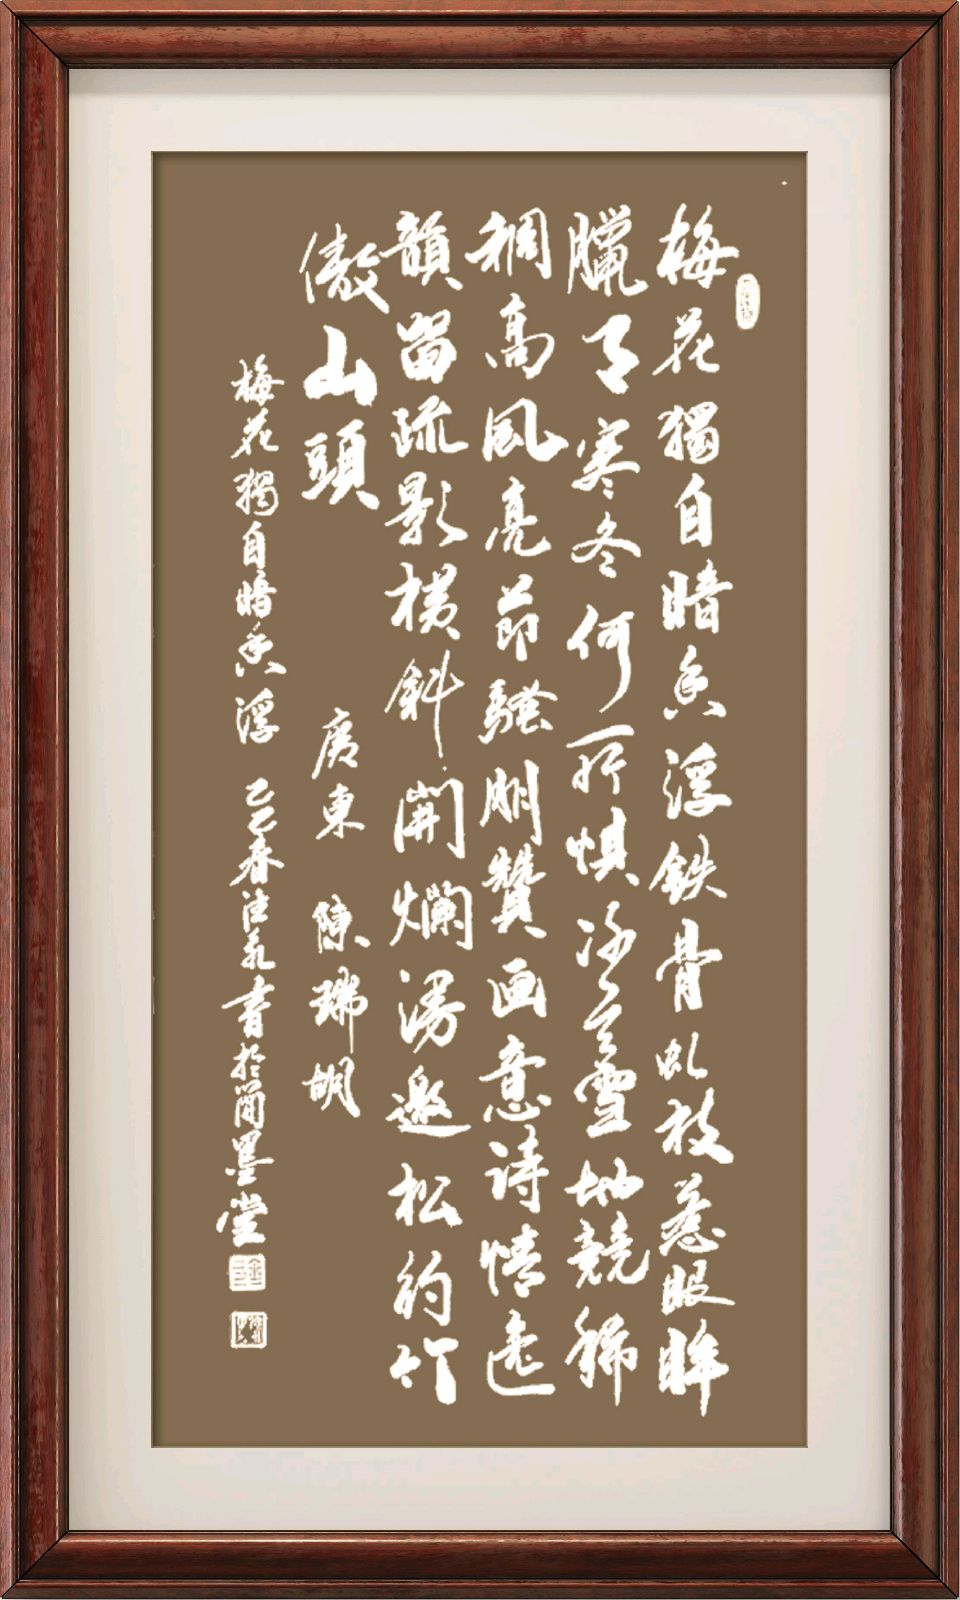 梅花獨自暗香浮鉄骨虬枝惹眼眸
臘月寒冬何所惧冰天雪地競稀
稠高風亮節騷朋贊画意詩情逸
韻留疏影横斜開爛漫邀松約竹
傲山頭
廣東 陳瑞明
梅花獨自暗香浮 乙巳春書於簡墨堂